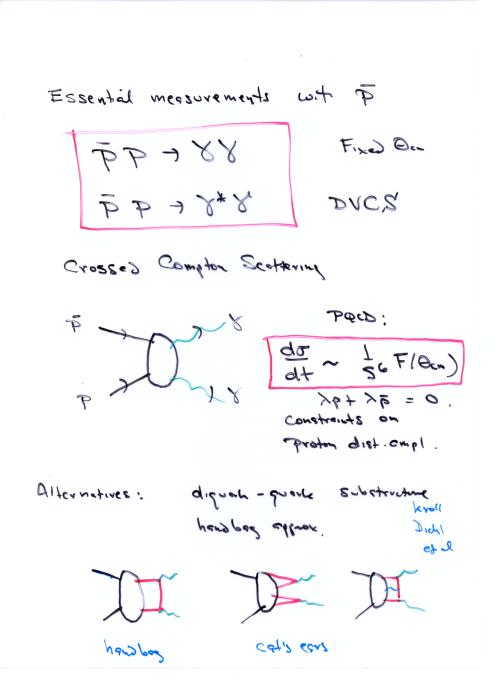 Essential measurements wit p̄
p̄ p → γγ Fixed θcm
p̄ p → γ* γ DVCS
Crossed Compton Scattering
p̄ γ
PQCD:
dσ/dt ~ 1/s⁶ F(θcm)
p γ
λp + λp̄ = 0.
constraints on
proton dist. ampl.
Alternatives: diquark-quark substructure
handbag approx.
Kroll
Diehl
et al
handbag cat's ears